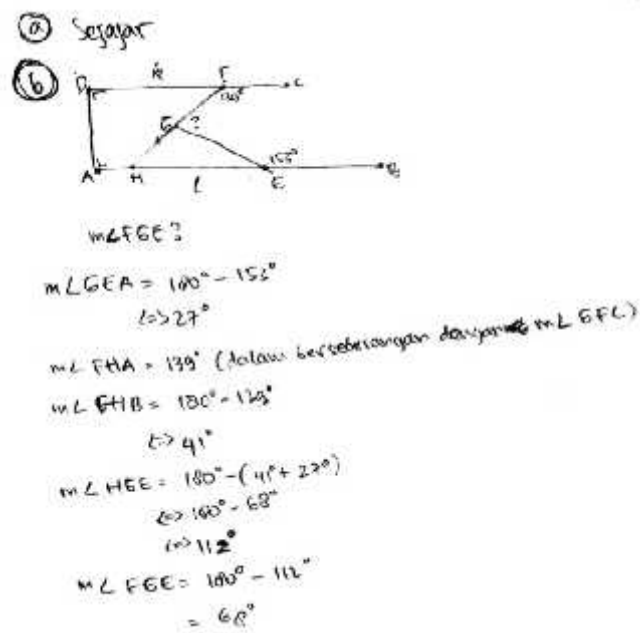 (a) Sejajar
(b)
D k F C
139°
G ?
153°
A H l E B
m∠FGE?
m∠GEA = 180° - 153°
<=> 27°
m∠FHA = 139° (dalam berseberangan dengan m∠GFC)
m∠FHB = 180° - 139°
<=> 41°
m∠HGE = 180° - (41° + 27°)
<=> 180° - 68°
<=> 112°
m∠FGE = 180° - 112°
= 68°